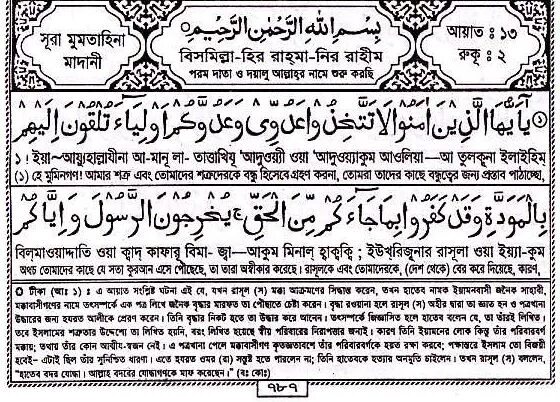 সূরা মুমতাহিনা
মাদানী
بِسْمِ اللهِ الرَّحْمٰنِ الرَّحِيْمِ
বিসমিল্লা-হির রাহ্মা-নির রাহীম
পরম দাতা ও দয়ালু আল্লাহ্র নামে শুরু করছি
আয়াত : ১৩
রুকূ : ২
يٰاَيُّهَا الَّذِيْنَ اٰمَنُوْا لَا تَتَّخِذُوْا عَدُوِّىْ وَعَدُوَّكُمْ اَوْلِيَآءَ تُلْقُوْنَ اِلَيْهِمْ
১। ইয়া~আয়্যুহাল্লাযীনা আ-মানূ লা- তাত্তাখিযূ 'আদুওয়্যী ওয়া 'আদুওয়্যাকুম আওলিয়া—আ তুল্কূনা ইলাইহিম্
(১) হে মুমিনগণ! আমার শত্রু এবং তোমাদের শত্রুদেরকে বন্ধু হিসেবে গ্রহণ করনা, তোমরা তাদের কাছে বন্ধুত্বের জন্য প্রস্তাব পাঠাচ্ছো,
بِالْمَوَدَّةِ وَقَدْ كَفَرُوْا بِمَا جَآءَكُمْ مِّنَ الْحَقِّ ۚ يُخْرِجُوْنَ الرَّسُوْلَ وَاِيَّاكُمْ
বিল্মাওয়াদ্দাতি ওয়া ক্বাদ্ কাফারূ বিমা- জ্বা—আকুম মিনাল্ হাক্বক্বি; ইউখরিজূনার রাসূলা ওয়া ইয়্যা-কুম
অথচ তোমাদের কাছে যে সত্য কুরআন এসে পৌঁছেছে, তা তারা অস্বীকার করেছে। রাসূলকে এবং তোমাদেরকে, (দেশ থেকে) বের করে দিয়েছে, কারণ,
টীকা (আঃ ১) : এ আয়াত সংশ্লিষ্ট ঘটনা এই যে, যখন রাসূল (স) মক্কা আক্রমণের সিদ্ধান্ত করেন, তখন হাতেব নামক ইয়ামনবাসী জনৈক সাহাবী,
মক্কাবাসীগণের নামে তৎসম্পর্কে এক পত্র লিখে জনৈক বৃদ্ধার মারফত তা পৌঁছাতে চেষ্টা করেন। বৃদ্ধা রওয়ানা হলে রাসূল (স) অহীর দ্বারা তা জ্ঞাত হন ও পত্রখানা
উদ্ধারের জন্য হযরত আলীকে প্রেরণ করেন। তিনি বৃদ্ধার নিকট হতে তা উদ্ধার করে আনেন। তৎসম্পর্কে জিজ্ঞাসিত হলে হাতেব বলেন যে, তা তাঁরই লিখিত।
তবে ইসলামের শত্রুতার উদ্দেশ্যে তা লিখিত হয়নি, বরং লিখিত হয়েছে স্বীয় পরিবারের নিরাপত্তার জন্যই। কারণ তিনি ইয়ামনের লোক কিন্তু তাঁর পরিবারবর্গ
মক্কায়; তথায় তাঁর কোন আত্মীয়-স্বজন নেই। এ পত্রখানা পেলে মক্কাবাসীগণ কৃতজ্ঞতাবশে তাঁর পরিবারবর্গকে হয়ত রক্ষা করবে; পক্ষান্তরে ইসলাম তো বিজয়ী
হবেই- এটাই ছিল তাঁর সুনিশ্চিত ধারণা। এতে হযরত ওমর (রা) সন্তুষ্ট হতে পারলেন না; তিনি হাতেবকে হত্যার অনুমতি চাইলেন। তখন রাসূল (স) বললেন,
"হাতেব বদর যোদ্ধা। আল্লাহ বদরের যোদ্ধাগণকে মাফ করেছেন।" (বঃ কোঃ)
৭৮৭